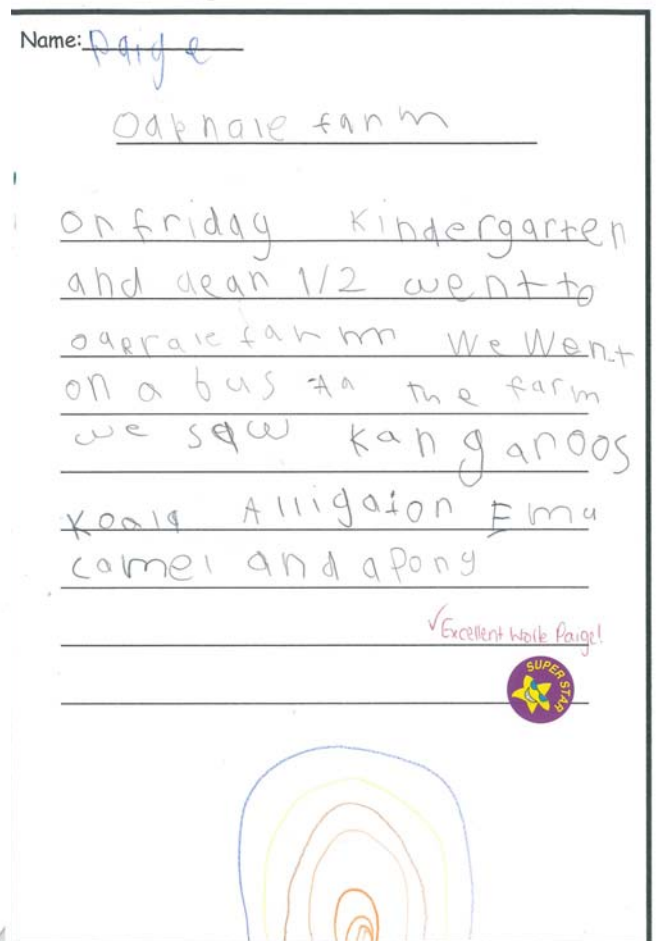 Name: Paige
Oakvale farm
on friday Kindergarten
and dean 1/2 went to
oakvale farm We Went
on a bus At the farm
we saw Kangaroos
Koala Alligator Emu
camel and a Pony
✓Excellent Work Paige!
SUPER STAR